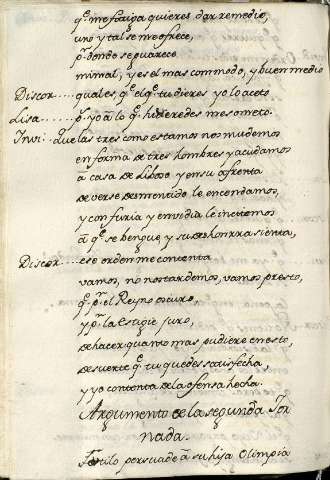 q̃. me fatiga quieres dar remedio
uno y tal se me ofrece,
p̃. donde se parece
mi mal, y es el mas commodo, y buen medio
Discor.... qual es, q̃. el q̃. tu dieres yo lo aceto
Lisa.... p̃. yo a lo q̃. hizieredes me someto.
Invi:. que las tres como estamos nos mudemos
en forma de tres hombres y acudamos
a casa de y en su afrenta
de verse desmentido le encendamos,
y con furia y envidia le incitemos
a q̃. se bengue y su deshonrra sienta,
Discor.... ese orden me contenta
vamos, no nos tardemos, vamos presto,
q̃. p̃. el Reyno oscuro,
y p̃. la estigie juro,
de hacer quanto mas pudiere en esto,
de suerte q̃. tu quedes satisfecha,
y yo contenta de la ofensa hecha.
Argumento de la segunda Jor
nada.
persuade a su hija Olimpia